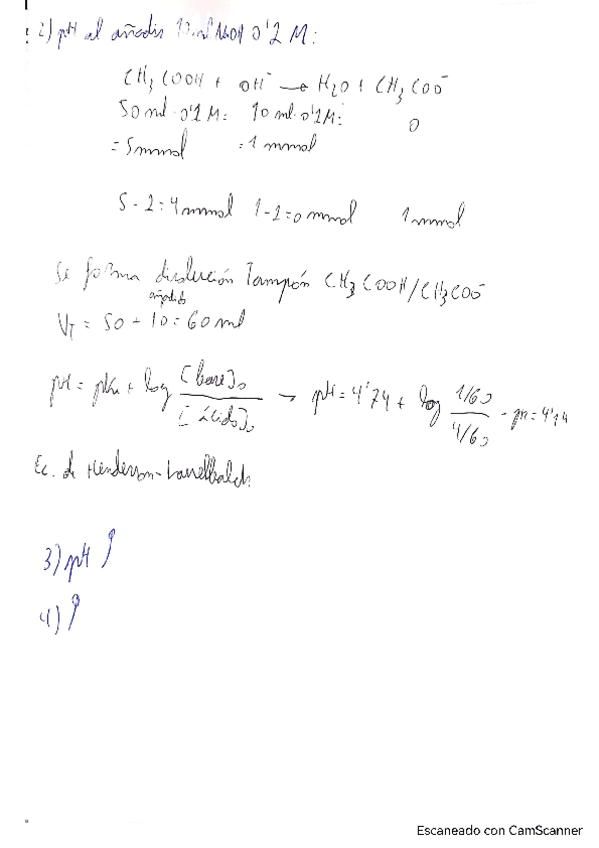 2) pH al añadir 10 ml NaOH 0'1 M:
CH3COOH + OH⁻ → H2O + CH3COO⁻
50 ml · 0'1 M = 10 ml · 0'1 M = 0
= 5 mmol = 1 mmol
5 - 1 = 4 mmol 1 - 1 = 0 mmol 1 mmol
Se forma disolución Tampón CH3COOH/CH3COO⁻
añadido
VT = 50 + 10 = 60 ml
pH = pKa + log [base]0 / [ácido]0 → pH = 4'74 + log 1/60 / 4/60 - pH = 4'14
Ec. de Henderson-Hasselbalch
3) pH
4)
Escaneado con CamScanner